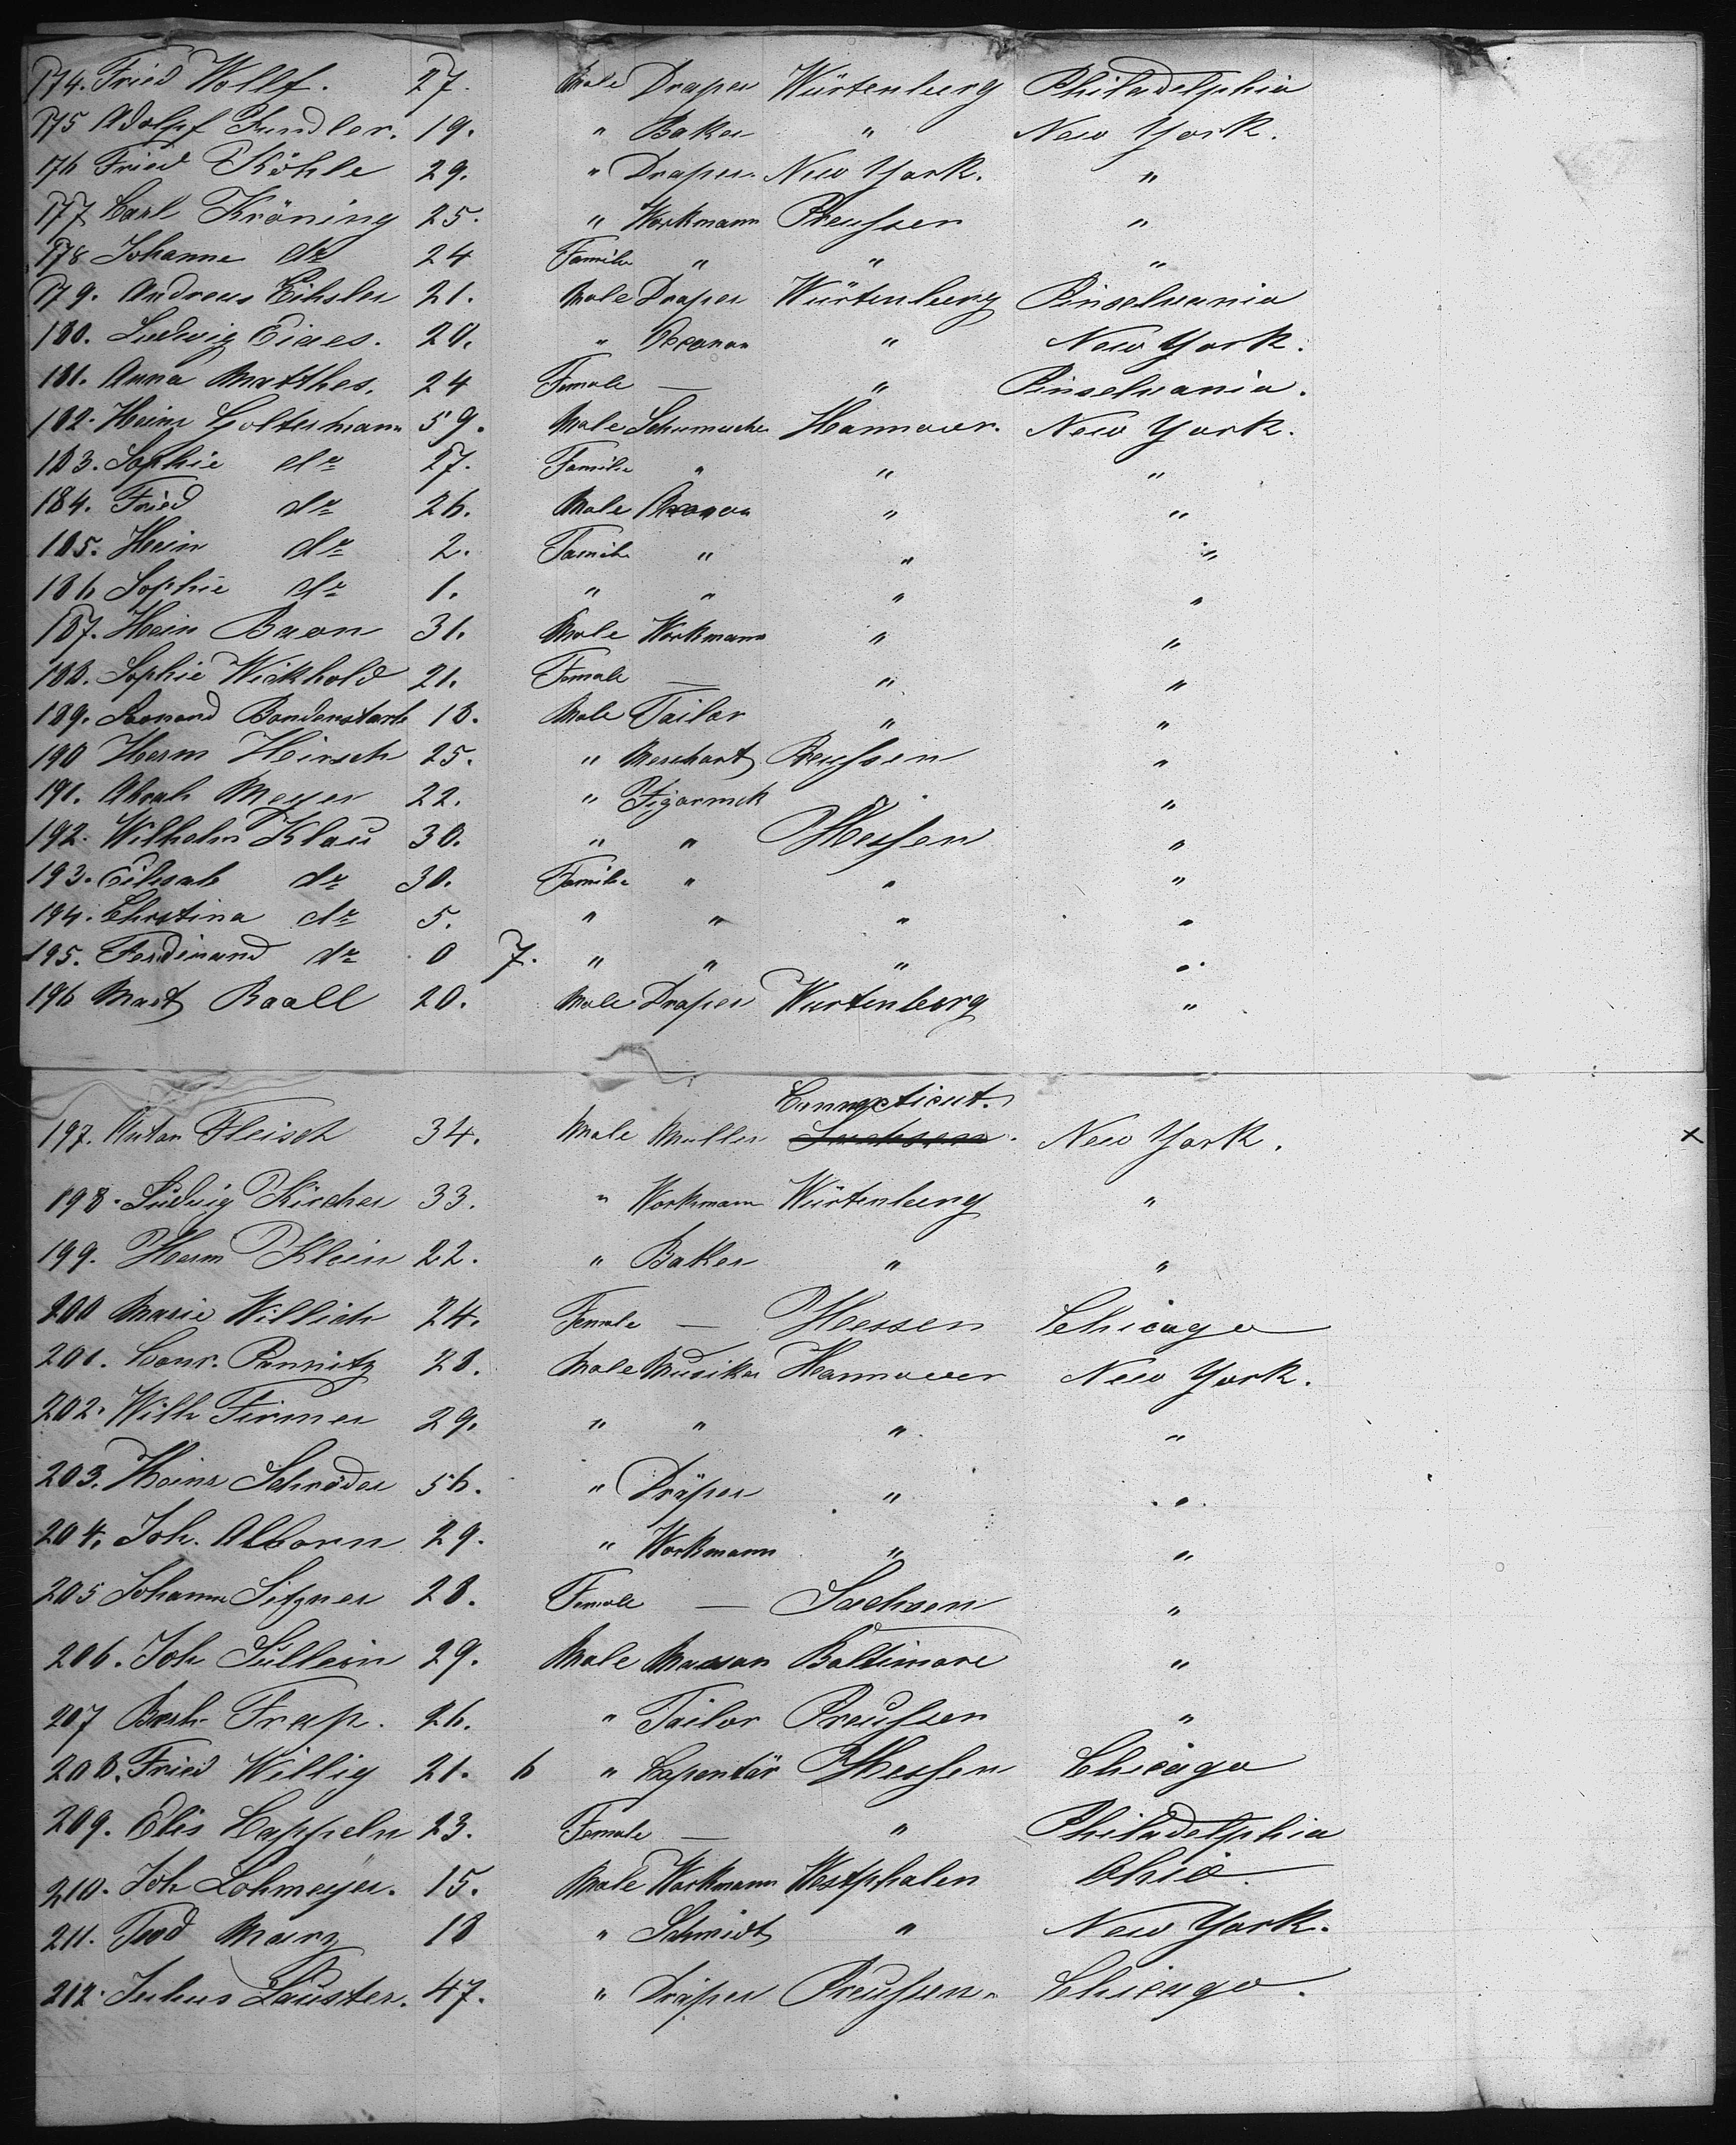 174. Fried Wollf. 27. Male Draper Würtenberg Philadelphia
175 Adolpf Kundler. 19. " Baker " New York.
176 Fried Köhle 29. " Draper. New York. "
177 Carl Kröning 25. " Workmann Preussen "
178 Johanne do 24 Famile " " "
179. Andreas Eihsler 21. Male Draper Würtenberg Pinselvania
180. Ludwig 20. " " New York.
181. Anna Matthes. 24 Female — " Pinselvania.
182. Heinr Goltermann 59. Male Schumacher Hannover. New York.
183. Sophie do 27. Famile " " "
184. Fried do 26. Male " "
185. Hein do 2. Famile " " "
186 Sophie do 1. " " " "
187. Hein Baron 31. Male Workmann " "
188. Sophie Wickhold 21. Female — " "
189. 18. Male Tailor " "
190 Herm Heirsch 25. " Merchant Preussen "
191. Abrah Meyer 22. " " "
192. Wilhelm Klau 30. " " Hessen "
193. do 30. Famile " " "
194. Chrstina do 5. " " " "
195. Ferdinand do 0 7. " " " "
196 Mart Raall 20. Male Draper Wurtenberg "
Connecticut.
197. Anton Fleisch 34. Male Muller Sachsen. New York. x
198. Ludwig Kircher 33. " Workmann Würtenberg "
199. Herm Klein 22. " Baker " "
200 Marie Willich 24. Female — Hessen Chicago
201. Conr. 28. Male Musiker Hannover New York.
202. Wilh Firmer 29. " " " "
203. Heinr Schröder 56. " Dräper " "
204. Joh. Alborn 29. " Workmann " "
205 Johanne Sitzner 28. Female — Sachsen "
206. Joh Süllein 29. Male Masson Baltimore "
207 Frap. 26. " Tailor Preussen "
208. Fried Willig 21. 6 " Capentär Hessen Chicago
209. Elis Cappeln 23. Female — " Philadelphia
210. Joh Lohmeyer. 15. Male Workmann Westphalen Ohio
211. 18 " Schmidt " New York.
212. Julius Lauster. 47. " Dräper Preussen. Chicago.